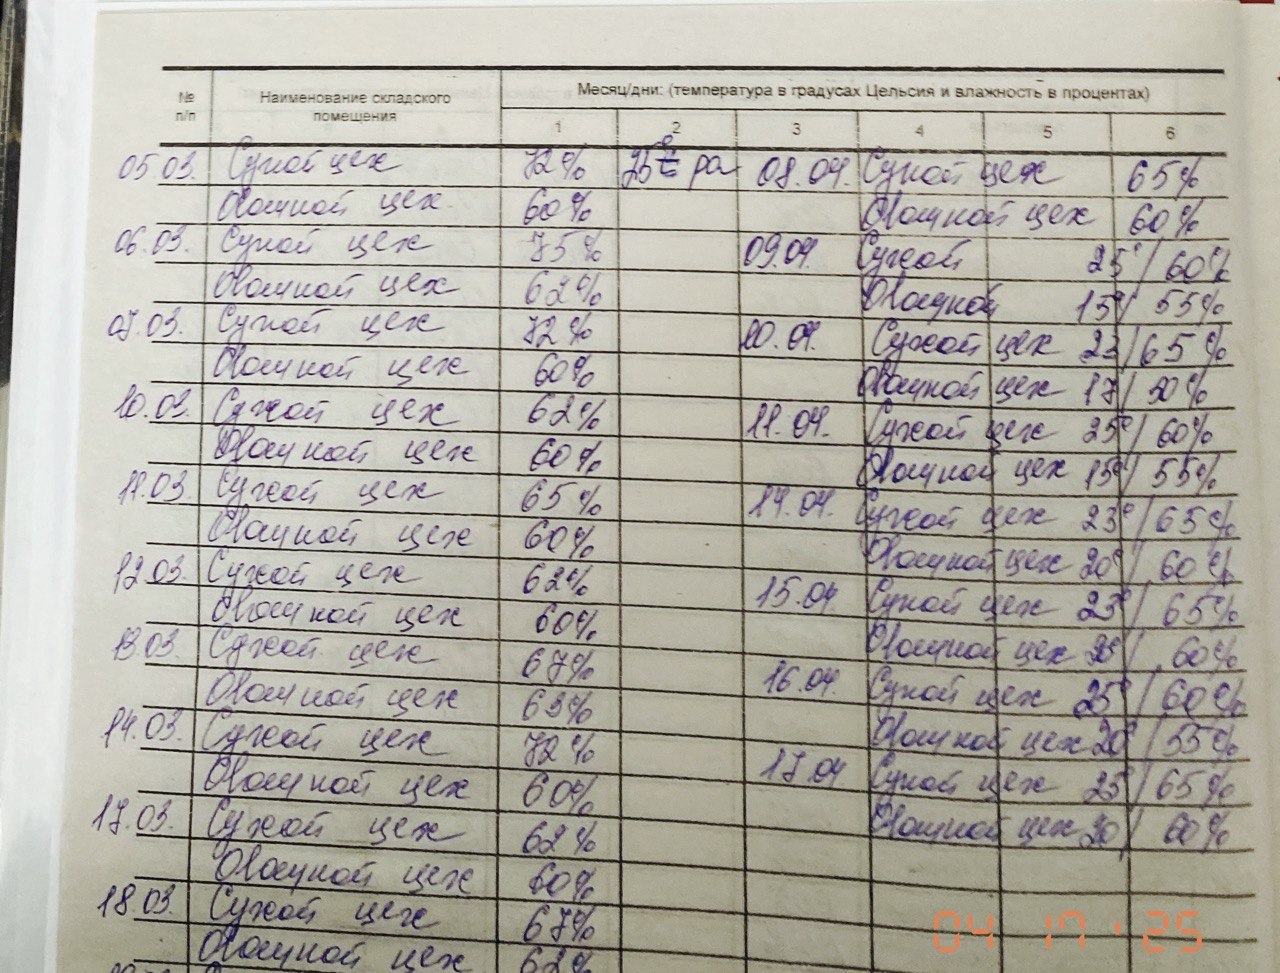 № п/п
Наименование складского помещения
Месяц/дни: (температура в градусах Цельсия и влажность в процентах)
1 2 3 4 5 6
05 03. Сухой цех 72% 08.04. Сухой цех 65%
Овощной цех 60% Овощной цех 60%
06.03. Сухой цех 75% 09.04. Сухой 25°/60%
Овощной цех 62% Овощной 15°/55%
07.03. Сухой цех 72% 10.04. Сухой цех 23/65%
Овощной цех 60% Овощной цех 17/50%
10.03. Сухой цех 62% 11.04. Сухой цех 25°/60%
Овощной цех 60% Овощной цех 15°/55%
11.03. Сухой цех 65% 14.04. Сухой цех 23°/65%
Овощной цех 60% Овощной цех 20°/60%
12.03. Сухой цех 62% 15.04 Сухой цех 23°/65%
Овощной цех 60% Овощной цех /60%
13.03. Сухой цех 67% 16.04. Сухой цех 25°/60%
Овощной цех 63% Овощной цех 20°/55%
14.03. Сухой цех 72% 17.04 Сухой цех 25/65%
Овощной цех 60% Овощной цех 20/60%
17.03. Сухой цех 62%
Овощной цех 60%
18 03. Сухой цех 67%
Овощной цех 62%
04 17 '25